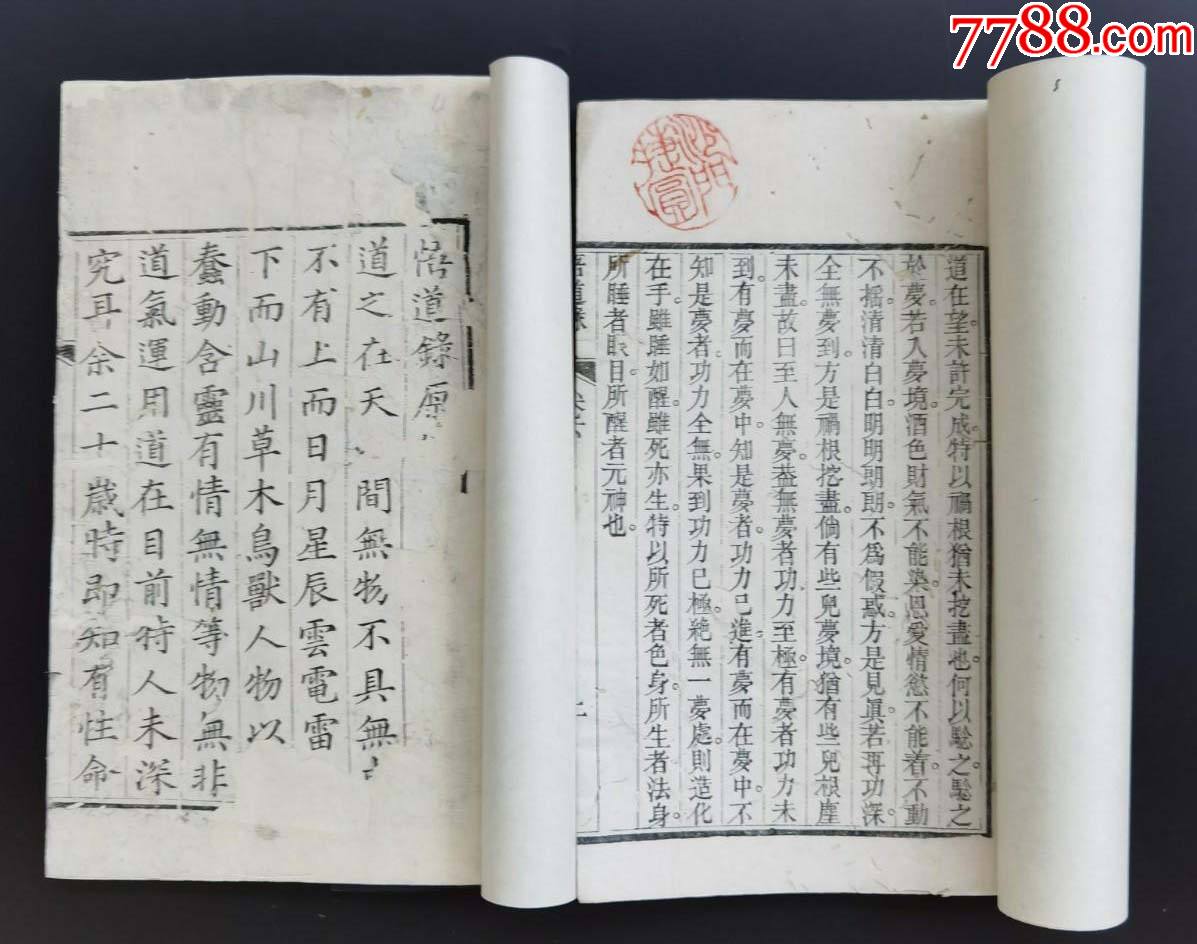 7788.com
道在望。未許完成。特以禍根猶未挖盡也。何以驗之。驗之
於夢。若入夢境。酒色財氣不能染。恩愛情慾不能着。不動
不搖。清清白白。明明朗朗。不爲假惑。方是見眞。若再功深。
全無夢到。方是禍根挖盡。倘有些兒夢境。猶有些兒根塵
未盡。故曰至人無夢。葢無夢者功力至極。有夢者功力未
到。有夢而在夢中知是夢者。功力已進。有夢而在夢中。不
知是夢者。功力全無。果到功力已極。絶無一夢處。則造化
在手。雖睡如醒。雖死亦生。特以所死者色身。所生者法身。
所睡者眼目。所醒者元神也。
悟道錄
二
悟道錄原
道之在天 間無物不具無
不有上而日月星辰雲電雷
下而山川草木鳥獸人物以
蠢動含靈有情無情等物無非
道氣運用道在目前特人未深
究耳余二十歲時即知有性命